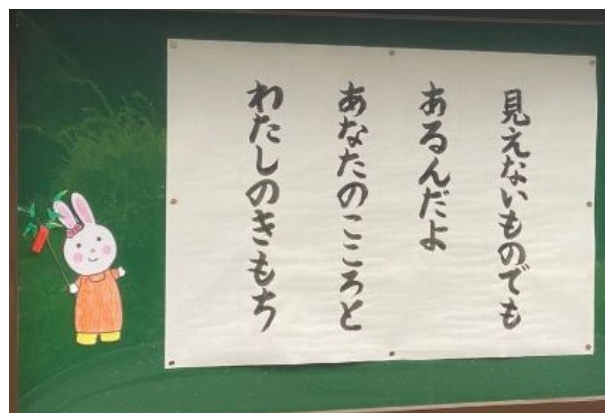 見えないものでも
あるんだよ
あなたのこころと
わたしのきもち